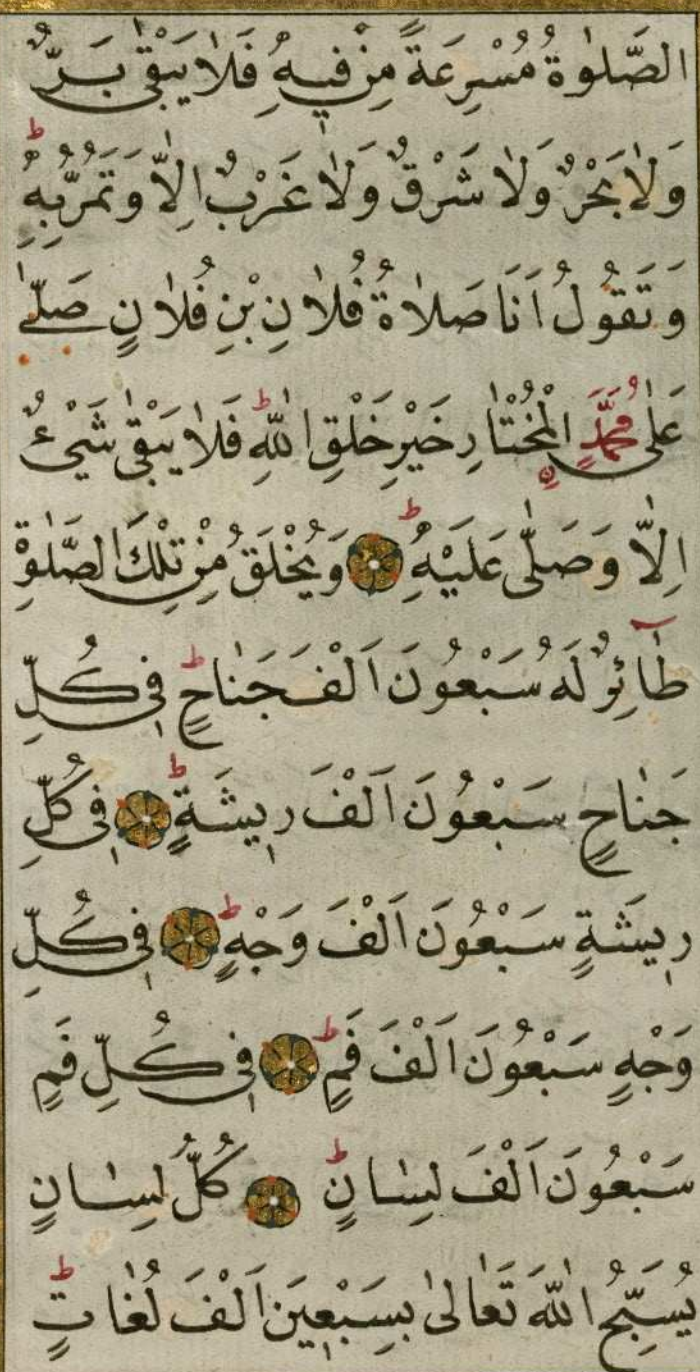 الصَّلٰوةُ مُسْرِعَةً مِنْ فِيهِ فَلَا يَبْقٰى بَرٌّ
وَلَا بَحْرٌ وَلَا شَرْقٌ وَلَا غَرْبٌ اِلَّا وَتَمُرُّ بِهِ ط
وَتَقُولُ اَنَا صَلَاةُ فُلَانِ بْنِ فُلَانٍ صَلّٰى
عَلٰى مُحَمَّدٍ الْمُخْتَارِ خَيْرِ خَلْقِ اللهِ ط فَلَا يَبْقٰى شَيْءٌ
اِلَّا وَصَلّٰى عَلَيْهِ ط وَيُخْلَقُ مِنْ تِلْكَ الصَّلٰوةِ
طَآئِرٌ لَهُ سَبْعُونَ اَلْفَ جَنَاحٍ ط فِى كُلِّ
جَنَاحٍ سَبْعُونَ اَلْفَ رِيشَةٍ ط فِى كُلِّ
رِيشَةٍ سَبْعُونَ اَلْفَ وَجْهٍ ط فِى كُلِّ
وَجْهٍ سَبْعُونَ اَلْفَ فَمٍ ط فِى كُلِّ فَمٍ
سَبْعُونَ اَلْفَ لِسَانٍ ط كُلُّ لِسَانٍ
يُسَبِّحُ اللهَ تَعَالٰى بِسَبْعِينَ اَلْفَ لُغَاتٍ ط